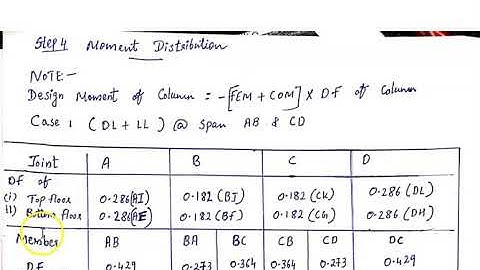 Step 4 Moment Distribution
NOTE-
Design Moment of Column = -[FEM + COM] × DF of Column
Case 1 (DL + LL) @ Span AB & CD
Joint A B C D
DF of
(i) Top floor 0.286(AI) 0.182(BJ) 0.182(CK) 0.286(DL)
ii) Bottom floor 0.286(AE) 0.182(BF) 0.182(CG) 0.286(DH)
Member AB BA BC CB CD DC
DF 0.429 0.273 0.364 0.364 0.273 0.429